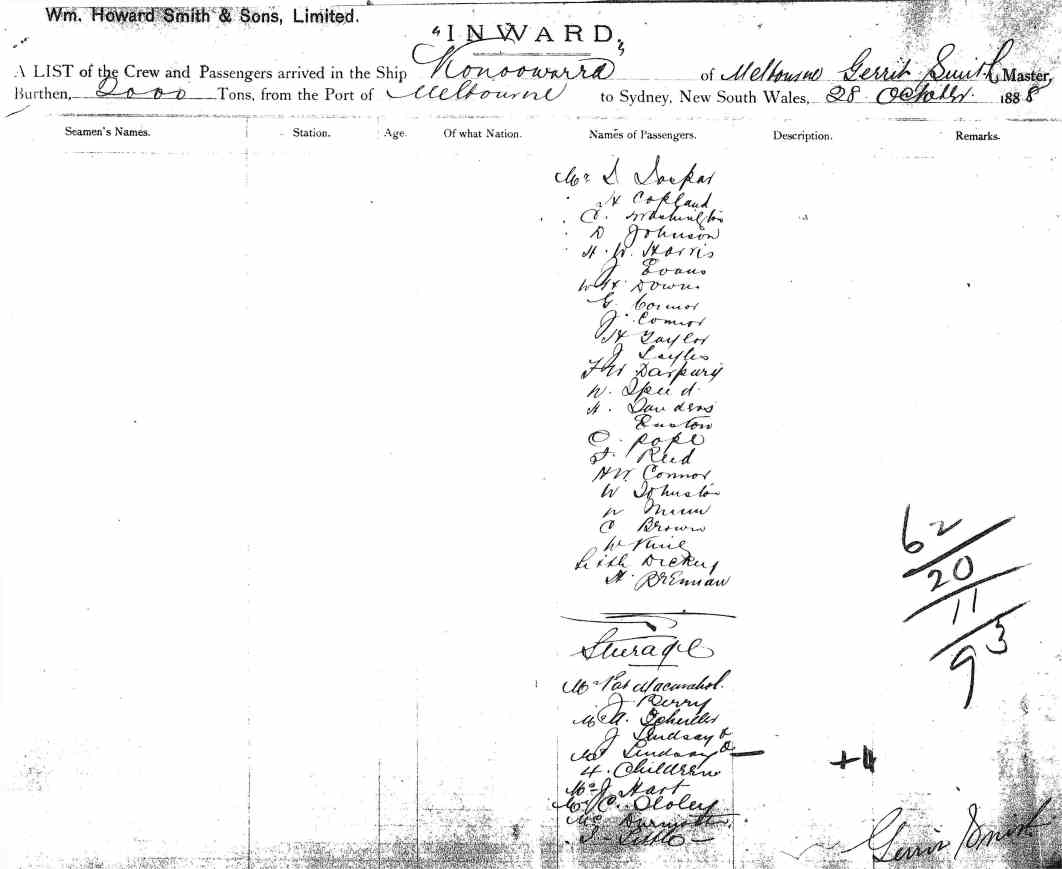 Wm. Howard Smith & Sons, Limited.
"INWARD,"
A LIST of the Crew and Passengers arrived in the Ship Konoowarra of Melbourne Gerrit Smith, Master,
Burthen, 2000 Tons, from the Port of Melbourne to Sydney, New South Wales, 28 October 1888
Seamen's Names. Station. Age. Of what Nation. Names of Passengers. Description. Remarks.
Mr D
H Copland
C. Washington
D Johnson
H. W. Harris
J Evans
W H Down
G. Connor
J. Connor
H Taylor
J Sayles
F W
W. Speed
H. Sanders
Euston
C. Pope
J. Reed
H W. Connor
W Johnston
W Munn
C Brown
W King
Dickey
H. Brennan
Steerage
Mr Pat
J Perry
A.
J Lindsay &
Lindsay &
4. Children
Mr J Hart
C.
J. Little
62
20
11
93
+4
Gerrit Smith